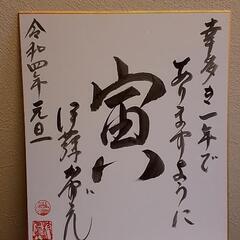 幸多き一年で
ありますように
寅
令和四年 元旦